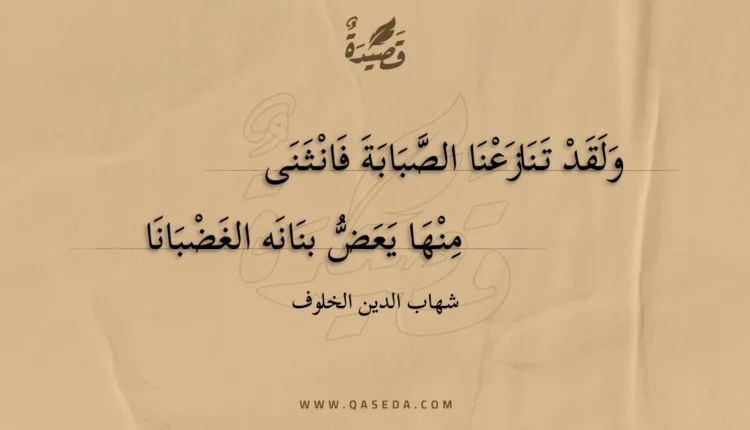 قَصِيدَةٌ
وَلَقَدْ تَنَازَعْنَا الصَّبَابَةَ فَانْثَنَى
مِنْهَا يَعَضُّ بنَانَه الغَضْبَانَا
شهاب الدين الخلوف
WWW.QASEDA.COM